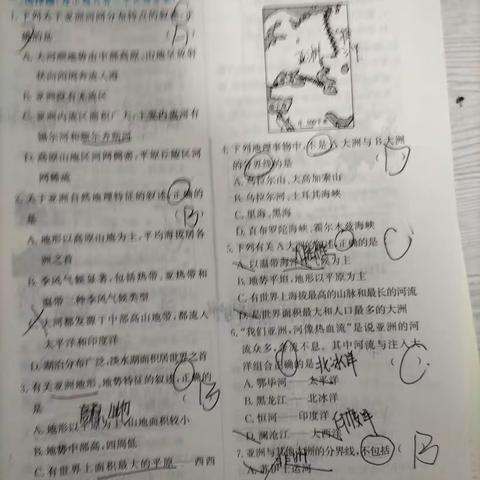 1. 下列关于亚洲河网分布特点的叙
确的是 (D)
A. 大河顺地势由中部高原、山地呈放射
状向四周奔流入海
B. 亚洲没有无流区
C. 亚洲内流区面积广大,主要内流河有
锡尔河和额尔齐斯河
D. 高原山地区河网稠密,平原丘陵区河
网稀疏
2. 关于亚洲自然地理特征的叙述,正确的
是 (B)
A. 地形以高原山地为主,平均海拔居各
洲之首
B. 季风气候显著,包括热带、亚热带和
温带三种季风气候类型
大河都发源于中部高山地带,都流入
太平洋和印度洋
D. 湖泊分布广泛,淡水湖面积居世界之首
3. 有关亚洲地形、地势特征的叙述,正确的
是 B
A. 地形以 山地面积较小
B. 地势中部高,四周低
C. 有世界上面积最大的平原——西西
亚洲
4. 下列地理事物中,不是A大洲与B大洲
的分界线的是 (D)
A. 乌拉尔山、大高加索山
B. 乌拉尔河、土耳其海峡
C. 里海、黑海
D. 直布罗陀海峡、霍尔木兹海峡
5. 下列有关A大洲的叙述,正确的是 (C)
A. 以温带海洋性气候为主
B. 地势平坦,地形以平原为主
C. 有世界上海拔最高的山脉和最长的河流
D. 是世界面积最大和人口最多的大洲
6. “我们亚洲,河像热血流”是说亚洲的河
流众多,奔流不息。其中河流与注入大
洋组合正确的是 (C)
北冰洋
A. 鄂毕河——太平洋
B. 黑龙江——北冰洋
C. 恒河——印度洋
D. 澜沧江——大西洋
7. 亚洲与其他大洲的分界线,不包括 (B
A. 苏伊士运河